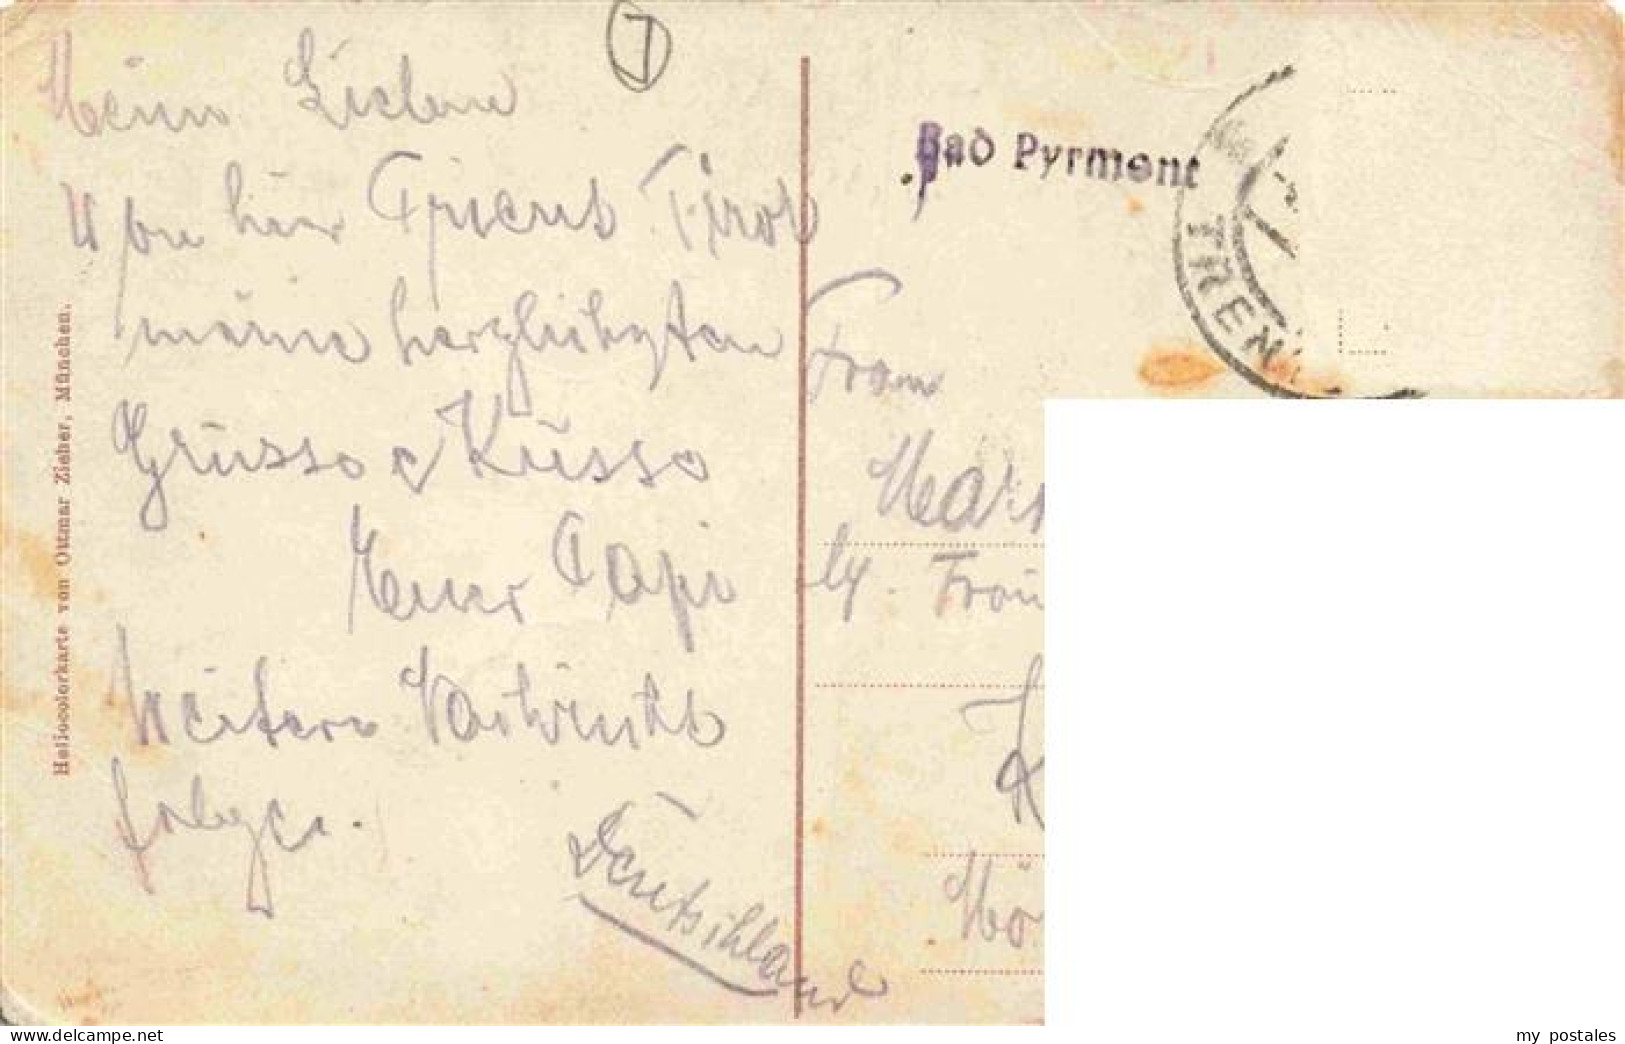 Meine Lieben
Von hier Trient Tirol
meine herzlichsten
Grüsse & Küsse
Euer Papi
Weitere Nachricht
folgen.
Deutschland
Heliocolorkarte von Ottmar Zieher, München.
T
Bad Pyrmont
TREN
Frau
Mar
Frau
Mö
my postales